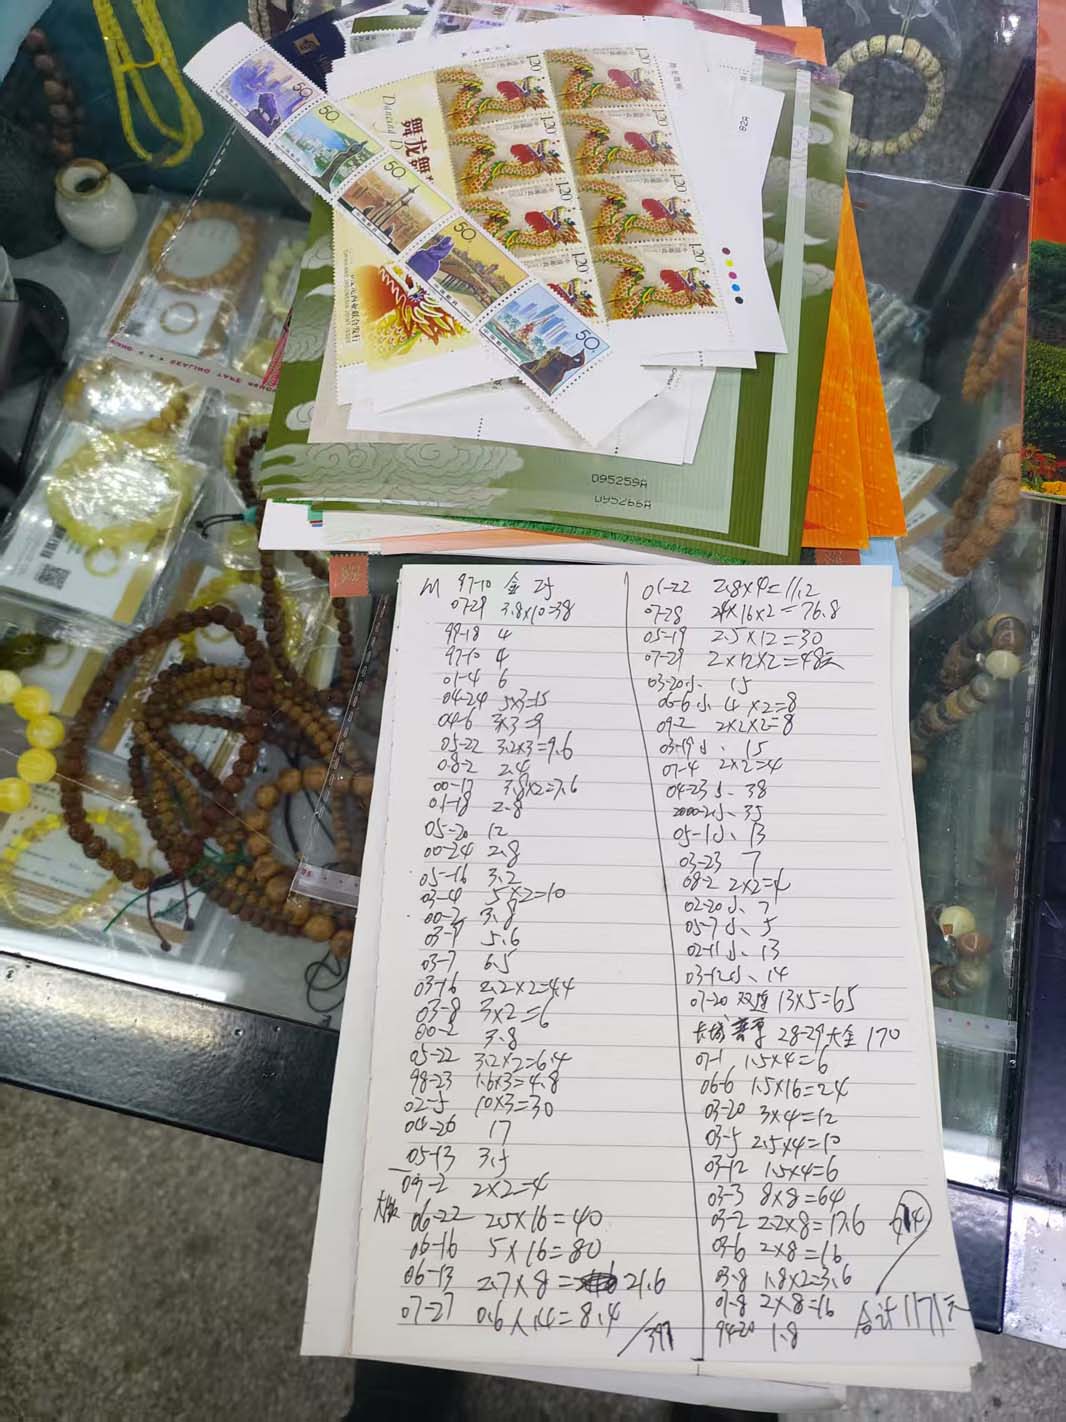 50分
50分
50分
50分
50分
1.20
1.20
1.20
1.20
1.20
1.20
1.20
1.20
舞龙舞
Dancing D
联合发行
528
095259A
095266A
97-10
07-29 3.8×10=38
99-18 4
97-10 4
01-4 6
04-24 5×3=15
04-6 3×3=9
05-22 3.2×3=9.6
08-2 2.4
00-17 3.8×2=7.6
01-18 2.8
05-20 12
00-24 2.8
05-16 3.2
03-4 5×2=10
00-2 3.8
03-9 5.6
03-7 6.5
03-16 2.2×2=4.4
03-8 3×2=6
00-2 3.8
05-22 3.2×2=6.4
98-23 1.6×3=4.8
02-5 10×3=30
04-26 17
05-13 3.5
09-2 2×2=4
大版 06-22 2.5×16=40
06-16 5×16=80
06-13 2.7×8= 21.6
07-27 0.6×14=8.4
/397
01-22 2.8×4=11.2
07-28 2.4×16×2=76.8
05-19 2.5×12=30
07-29 2×12×2=48元
03-20小、15
06-6小 4×2=8
09-2 2×2×2=8
03-19小、15
07-4 2×2=4
04-23小、38
2000-2小、35
05-1小、13
03-23 7
08-2 2×2=4
02-20小、7
05-7小、5
02-11小、13
03-12小、14
07-20 双连 13×5=65
长城 28-29大全 170
07-1 1.5×4=6
06-6 1.5×16=24
03-20 3×4=12
03-5 2.5×4=10
03-12 1.5×4=6
03-3 8×8=64
03-2 2.2×8=17.6
03-6 2×8=16
03-8 1.8×2=3.6
07-8 2×8=16
94-20 1.8
合计1171元